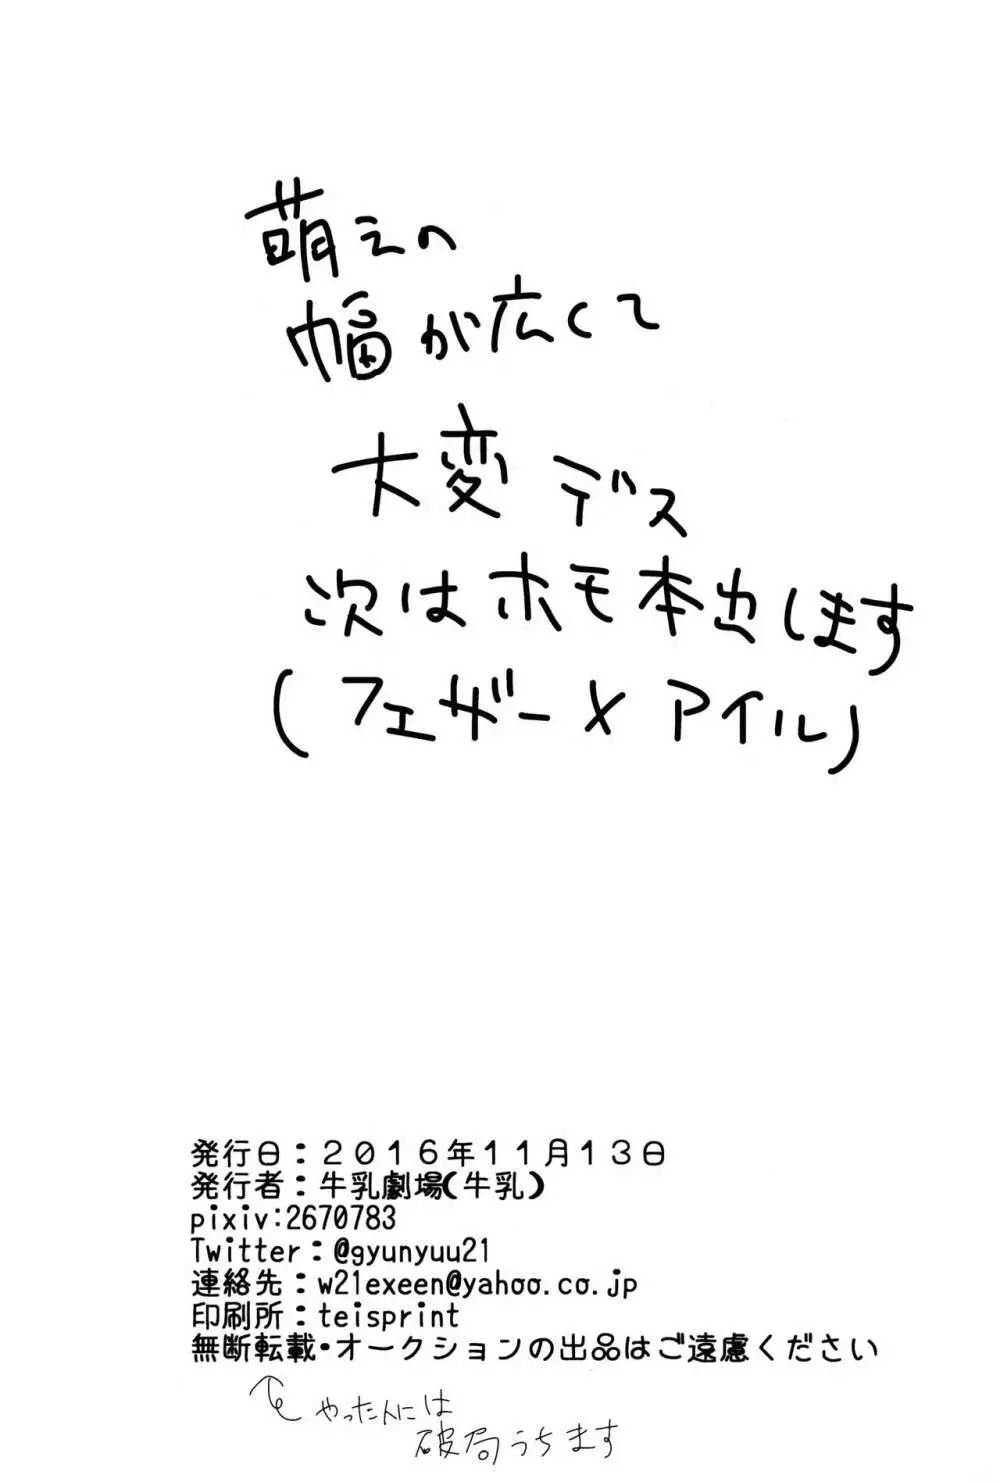 萌えの
幅が広くて
大変デス
次はホモ本出します
(フェザー×アイル)
発行日：２０１６年１１月１３日
発行者：牛乳劇場(牛乳)
pixiv:2670783
Twitter：@gyunyuu21
連絡先：w21exeen@yahoo.co.jp
印刷所：teisprint
無断転載・オークションの出品はご遠慮ください
↑やった人には
破局うちます